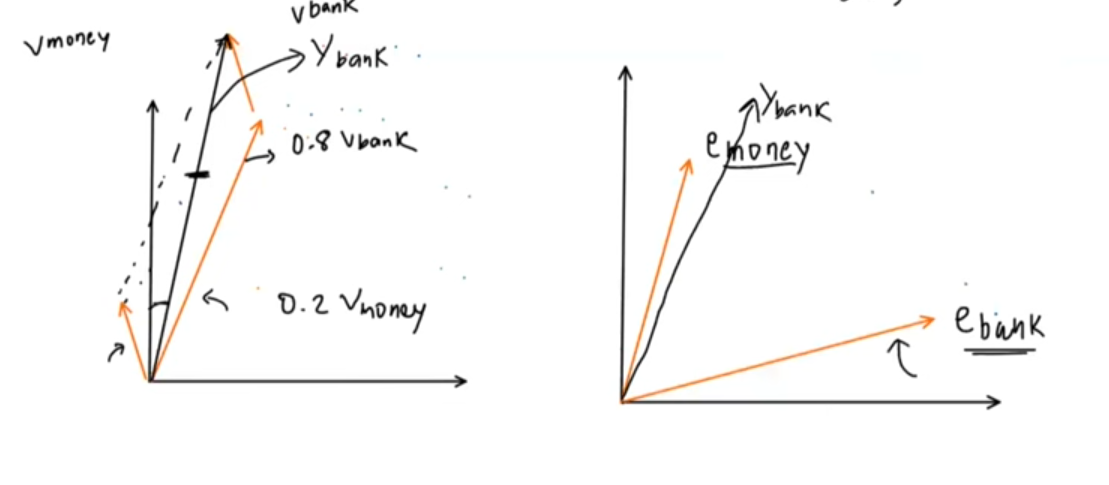 Vbank
Vmoney
Ybank
0.8 Vbank
0.2 Vmoney
Ybank
emoney
ebank